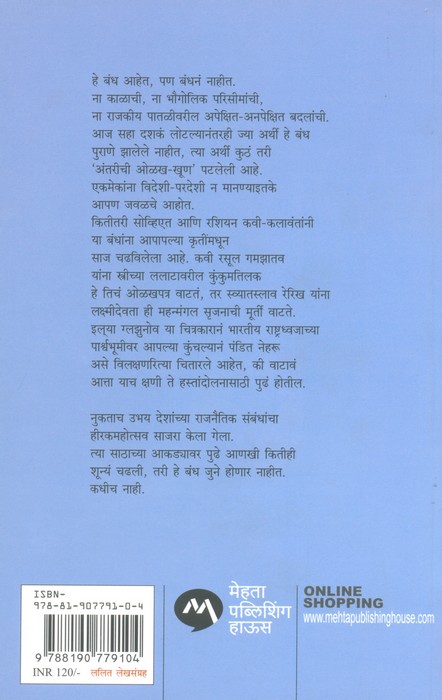 हे बंध आहेत, पण बंधनं नाहीत.
ना काळाची, ना भौगोलिक परिसीमांची,
ना राजकीय पातळीवरील अपेक्षित-अनपेक्षित बदलांची.
आज सहा दशकं लोटल्यानंतरही ज्या अर्थी हे बंध
पुराणे झालेले नाहीत, त्या अर्थी कुठं तरी
‘अंतरीची ओळख-खूण’ पटलेली आहे.
एकमेकांना विदेशी-परदेशी न मानण्याइतके
आपण जवळचे आहोत.
कितीतरी सोव्हिएत आणि रशियन कवी-कलावंतांनी
या बंधांना आपापल्या कृतींमधून
साज चढविलेला आहे. कवी रसूल गमझातव
यांना स्त्रीच्या ललाटावरील कुंकुमतिलक
हे तिचं ओळखपत्र वाटतं, तर स्व्यातस्लाव रेरिख यांना
लक्ष्मीदेवता ही महन्मंगल सृजनाची मूर्ती वाटते.
इल्या ग्लझुनोव या चित्रकारानं भारतीय राष्ट्रध्वजाच्या
पार्श्वभूमीवर आपल्या कुंचल्यानं पंडित नेहरू
असे विलक्षणरित्या चितारले आहेत, की वाटावं
आत्ता याच क्षणी ते हस्तांदोलनासाठी पुढं होतील.
नुकताच उभय देशांच्या राजनैतिक संबंधांचा
हीरकमहोत्सव साजरा केला गेला.
त्या साठाच्या आकड्यावर पुढे आणखी कितीही
शून्यं चढली, तरी हे बंध जुने होणार नाहीत.
कधीच नाही.
ISBN-
978-81-907791-0-4
9 788190 779104
INR 120/- ललित लेखसंग्रह
मेहता
पब्लिशिंग
हाऊस
ONLINE
SHOPPING
www.mehtapublishinghouse.com